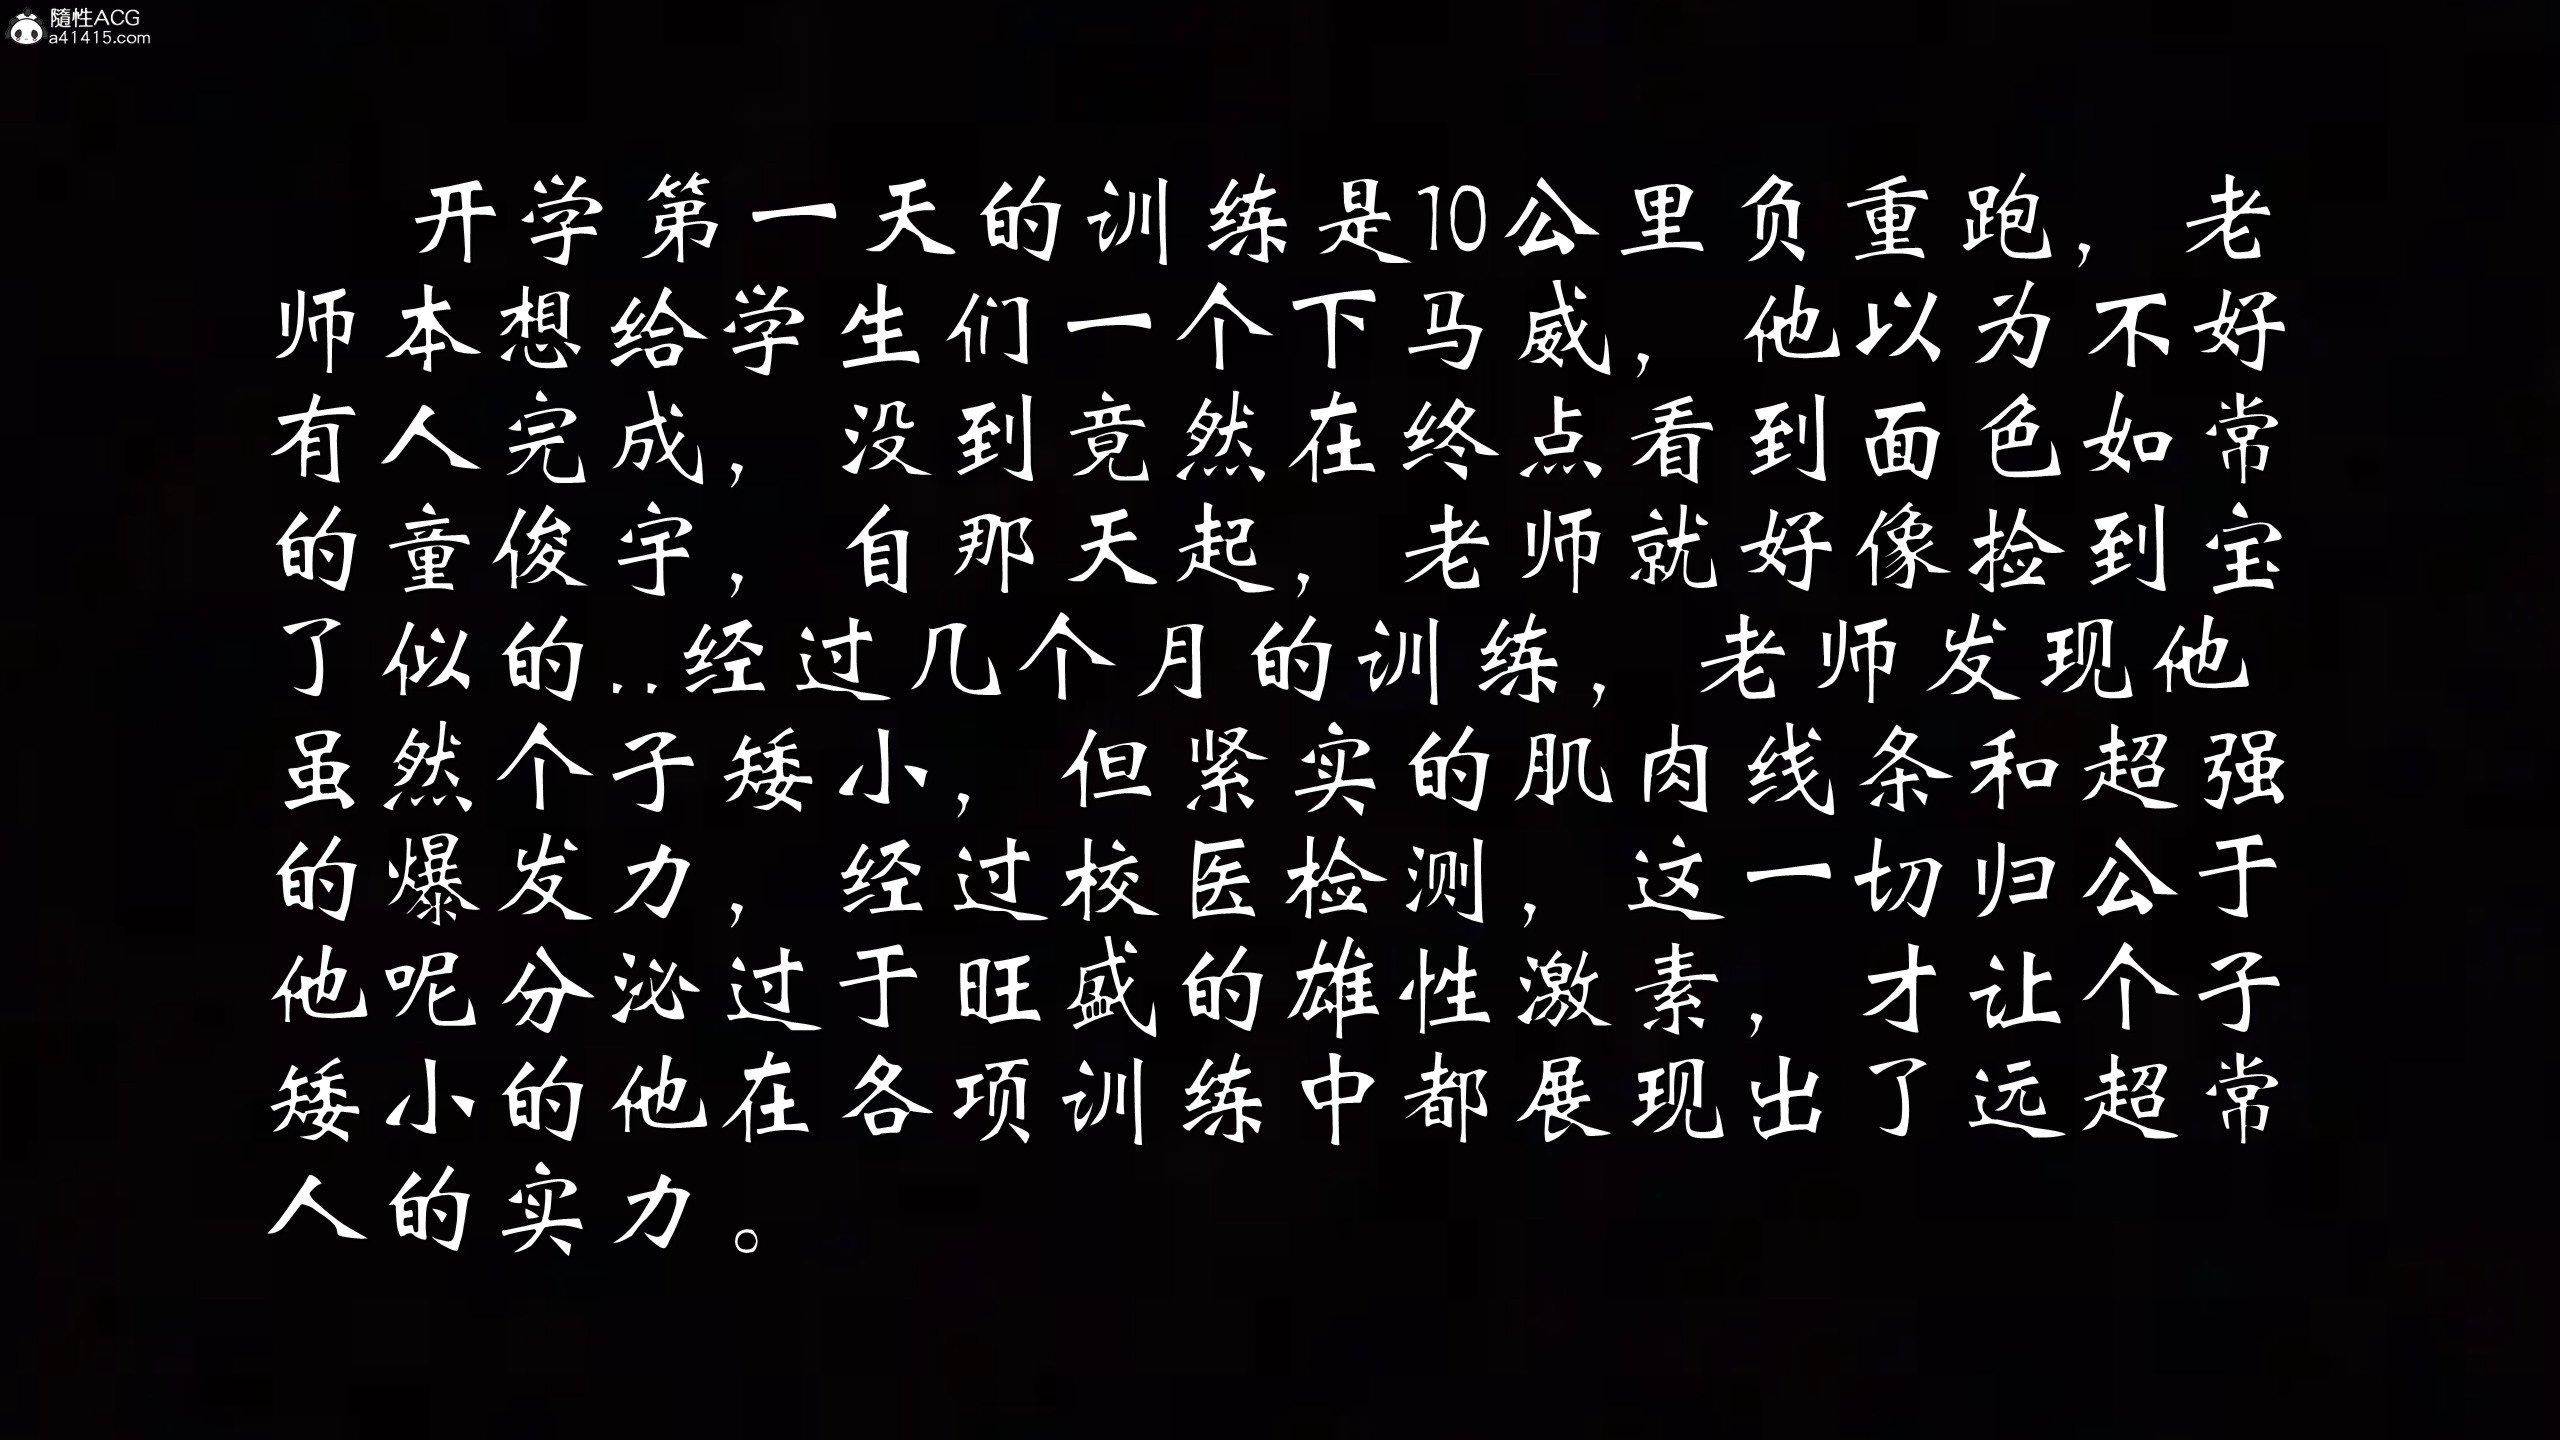 隨性ACG
a41415.com
开学第一天的训练是10公里负重跑，老
师本想给学生们一个下马威，他以为不好
有人完成，没到竟然在终点看到面色如常
的童俊宇，自那天起，老师就好像捡到宝
了似的..经过几个月的训练，老师发现他
虽然个子矮小，但紧实的肌肉线条和超强
的爆发力，经过校医检测，这一切归公于
他呢分泌过于旺盛的雄性激素，才让个子
矮小的他在各项训练中都展现出了远超常
人的实力。